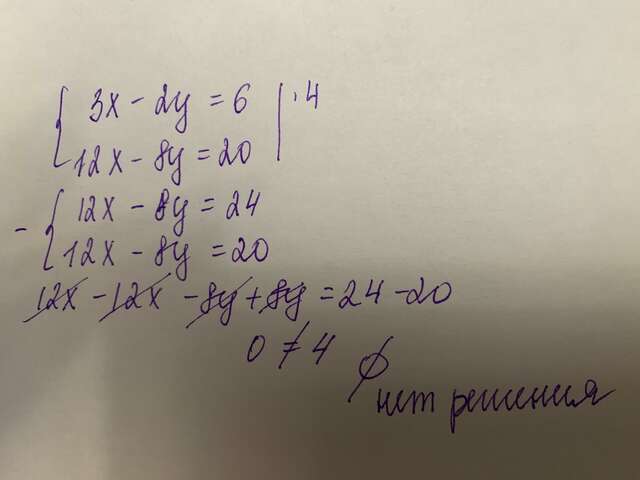 { 3x - 2y = 6 | · 4
12x - 8y = 20
- { 12x - 8y = 24
12x - 8y = 20
12x - 12x - 8y + 8y = 24 - 20
0 ≠ 4 ∅
нет решения